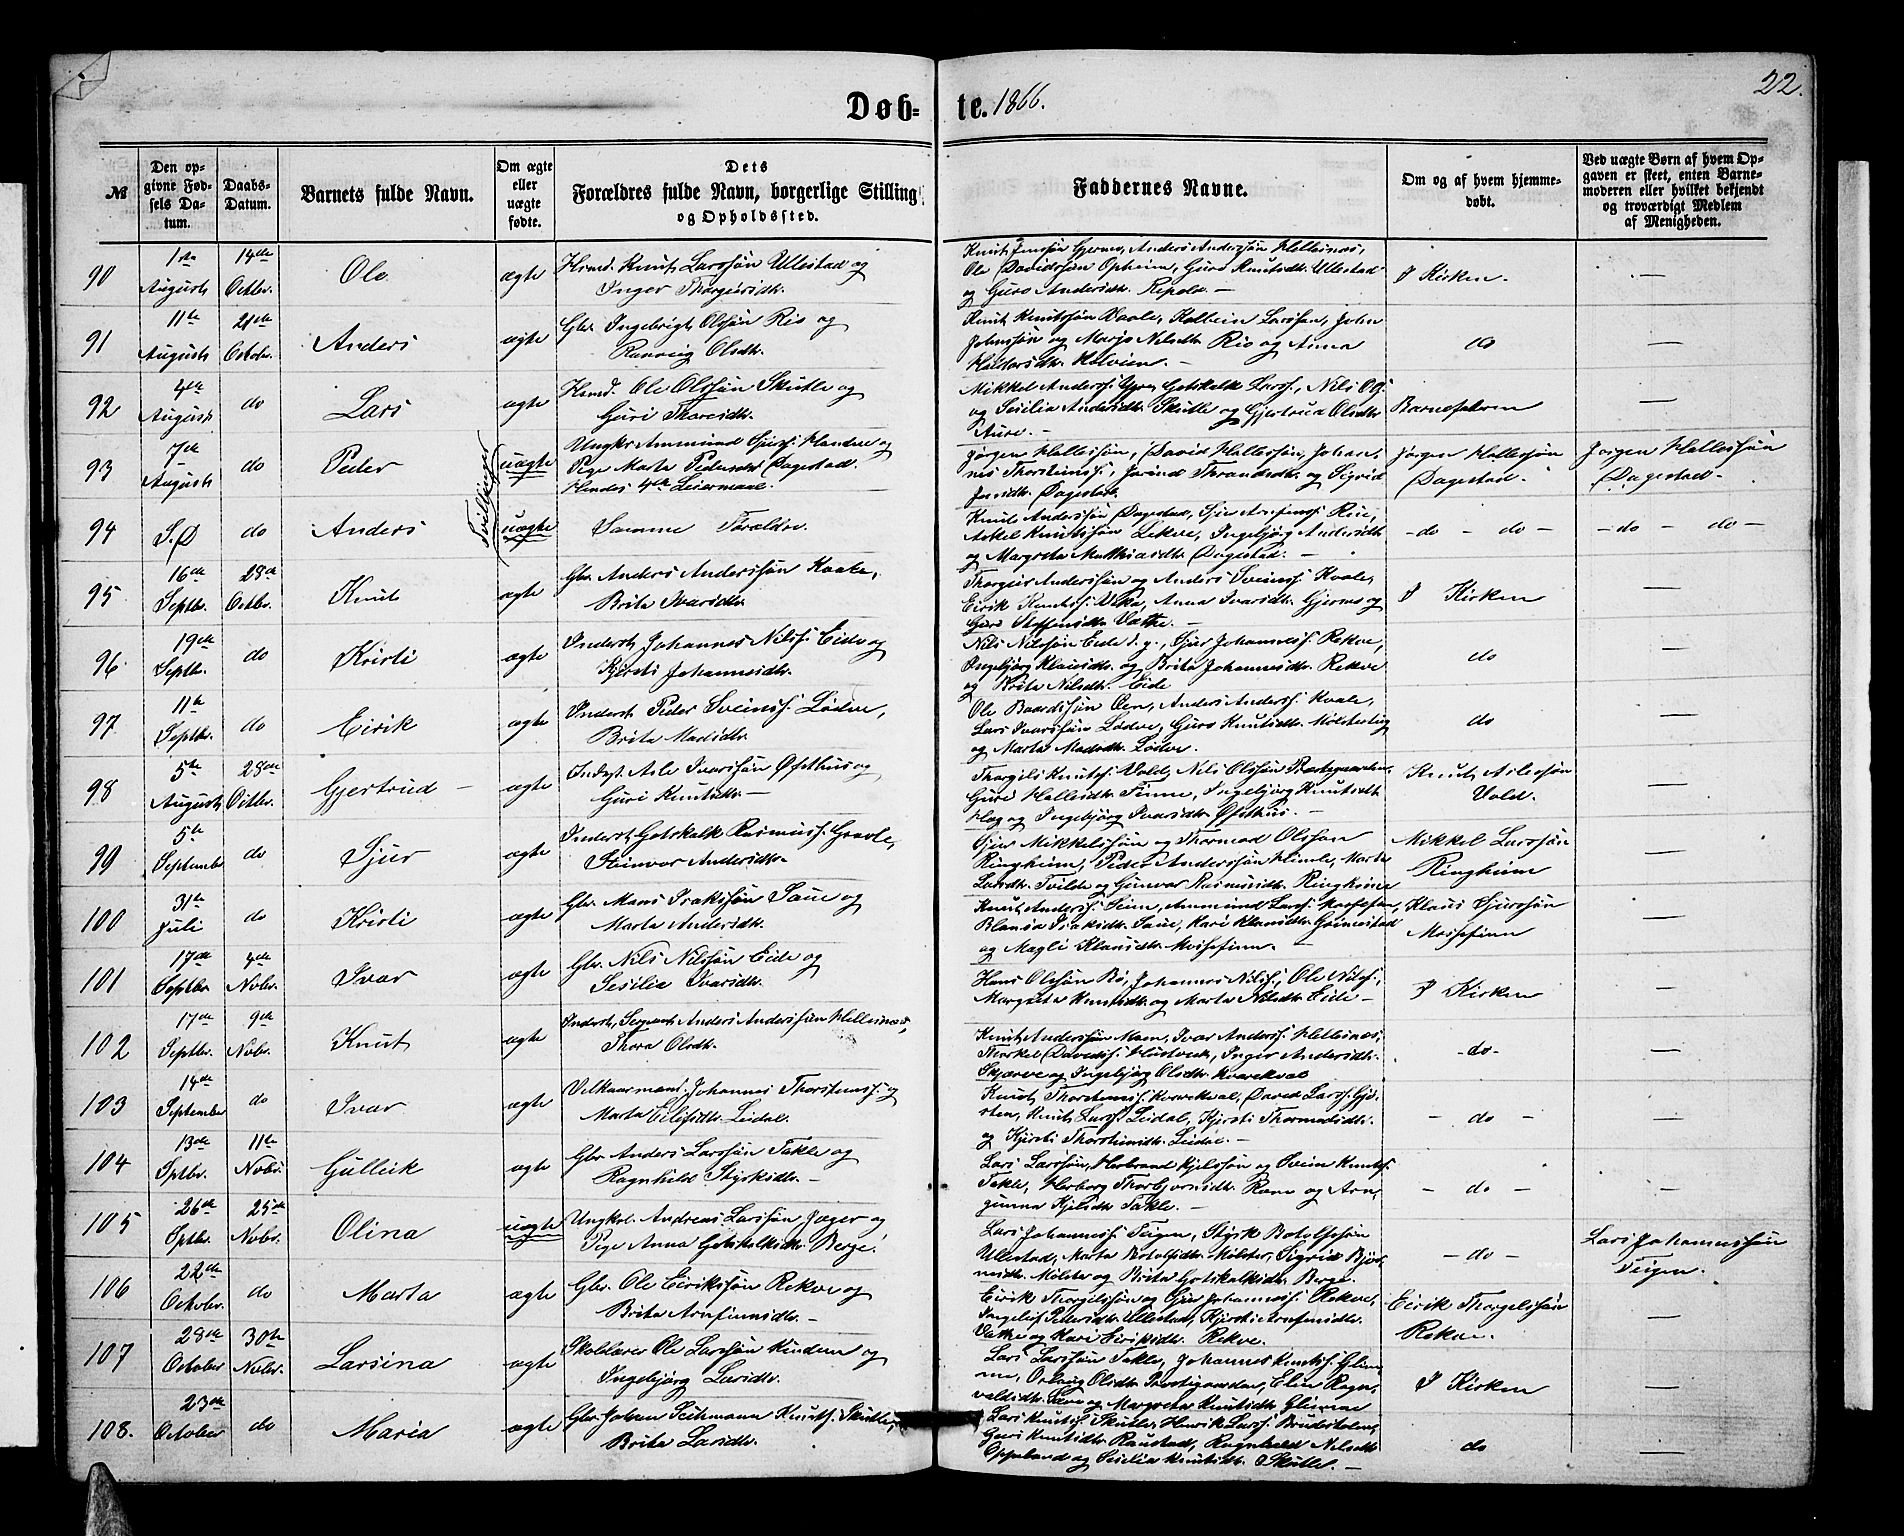 22.
Døb- te. 1866.
№
Den op-
givne Fød-
sels Da-
tum.
Daabs-
Datum.
Barnets fulde Navn.
Om ægte
eller
uægte
fødte.
Dets
Forældres fulde Navn, borgerlige Stilling
og Opholdssted.
Faddernes Navne.
Om og af hvem hjemme-
døbt.
Ved uægte Børn af hvem Op-
gaven er skeet, enten Barne-
moderen eller hvilket bekjendt
og troværdigt Medlem
af Menigheden.
90
1ste
August
14de
Octbr.
Ole
ægte
Husmd. Knut Larssøn Ullestad og
Inger Thorgeirsdtr.
Knut Jenssøn Gjerme, Anders Anderssøn Hellesnæs,
Ole Davidssøn Opheim, Guro Knutsdtr. Ullestad
og Guro Andersdtr. Repål. —
I Kirken.
—
91
11te
August
21de
Octobr.
Anders
ægte
Gbr. Ingebrigt Olssøn Rio og
Ranveig Olsdtr.
Knut Knutssøn Kvale, Kolbein Larssøn, John
Johnssøn og Marjo Nilsdtr. Rio og Anna
Haldorsdtr. Holvien. —
do
—
92
4de
August
do
Lars
ægte
Husmd. Ole Olssøn Skutle og
Guri Thoresdtr.
Mikkel Anderss. Gjøn, Gotskalk Larss., Nils Og.
og Sesilia Andersdtr. Skutle og Gjertrud Olsdtr.
Aure. —
Barnefaderen
—
93
7de
August
do
Peder
Tvillinger
uægte
Ungkr. Ammund Sjurss. Handve og
Pige Marta Pedersdtr. Dagestad.
Hendes 4de Leiermaal.
Jørgen Hallessøn, David Hallessøn, Johan-
nes Thorsteinss., Jorånd Throndsdtr. og Sigrid
Jonsdtr. Dagestad.
Jørgen Hallessøn
Dagestad.
Jørgen Hallessøn
Dagestad.
94
S.D
do
Anders
uægte
Samme Forældre.
Knut Anderssøn Dagestad, Sjur Arnfinnss. Rio,
Askel Knutssøn Lekve, Ingebjørg Andersdtr.
og Margreta Matthiasdtr. Dagestad. —
— do — do —
— do — do —
95
16de
Septbr.
28de
Octbr.
Knut
ægte
Gbr. Anders Anderssøn Kvale,
Brita Ivarsdtr.
Thorgeir Anderssøn og Anders Sveinss. Kvale,
Eirik Knutss. Veka, Anna Ivarsdtr. Gjerme og
Guri Steffensdtr. Væthe. —
I Kirken
—
96.
19de
Septbr.
do
Kristi
ægte
Inderst Johannes Nilss. Eide og
Kjersti Johannesdtr.
Nils Nilssøn Eide d. y., Sjur Johanness. Rekve,
Ingebjørg Klausdtr. og Brita Johannesdtr. Rekve
og Brita Nilsdtr. Eide
do
—
97.
11te
Septbr.
do
Eirik
ægte
Inderst Peder Sveinss. Lødve,
Brita Madsdtr.
Ole Baardssøn Øen, Anders Anderss. Kvale,
Lars Ivarssøn Lødve, Guro Knutsdtr. Mølsterteig
og Marta Madsdtr. Lødve.
do
—
98
5te
August
28de
Octbr.
Gjertrud —
ægte
Indst. Asle Ivarssøn Øfsthus og
Guri Knutsdtr. —
Thorgils Knutss. Vold, Nils Olssøn Præstegaarden,
Guri Hallesdtr. Finne, Ingebjørg Knutsdtr.
Haug og Ingebjørg Ivarsdtr. Øfsthus. —
Knut Aslessøn
Vold.
—
99
5te
September
do
Sjur
ægte
Inderst Gotskalk Rasmuss. Gravle,
Steinvor Andersdtr.
Sjur Mikkelssøn og Thormod Olssøn
Ringheim, Peder Anderssøn Himle, Marta
Larsdtr. Tvilde og Gunvor Rasmusdtr. Ringheim
Mikkel Larssøn
Ringheim
—
100
31te
Juli
do
Kristi
ægte
Gbr. Mons Isakssøn Saue og
Marta Andersdtr.
Knut Anderss. Seim, Ammund Larss. Mossefinn,
Blansa Isaksdtr. Saue, Kari Klausdtr. Grimestad
og Magli Klausdtr. Mossefinn. —
Klaus Sjurssøn
Mossefinn
—
101
17de
Septbr.
4de
Novbr.
Ivar
ægte
Gbr. Nils Nilssøn Eide og
Sesilia Ivarsdtr.
Hans Olssøn Bø, Johannes Nilss., Ole Nilss.,
Margreta Knutsdtr. og Marta Nilsdtr. Eide —
I Kirken
—
102
17de
Septbr.
9de
Novbr.
Knut
ægte
Inderst, Sergeant Anders Anderssøn Hellesnæs,
Thora Olsdtr.
Knut Anderssøn Møen, Ivar Anderss. Hellesnæs,
Thorkel Davidss. Hustveit, Inger Andersdtr.
Skjærve og Ingebjørg Olsdtr. Kvarekval
- do -
—
103
14de
September
do
Ivar
ægte
Velkaarmand Johannes Thorsteinss. og
Marta Eilifsdtr. Leidal.
Knut Thorsteinss. Kvarekval, David Larss. Gjø-
sten, Knut Larss. Leidal, Kjersti Thormodsdtr.
og Kjersti Thorsteinsdtr. Leidal. —
— do —
—
104
13de
Sptbr.
11te
Novbr.
Gulleik
ægte
Gbr. Anders Larssøn Takle og
Ragnhild Styrksdtr. —
Lars Larssøn, Herbrand Kjelssøn og Svein Knutss.
Takle, Herborg Thorbjørnsdtr. Rone og Arn-
gunna Kjelsdtr. Takle. —
— do —
—
105
26de
Sptbr.
25de
Novbr.
Olina
uægte
Ungkrl. Andreas Larssøn Jæger og
Pige Anna Gotskalksdtr. Berge.
Lars Johanness. Teigen, Styrk Botolfssøn
Ullestad, Marta Botolfsdtr. Mølster, Sigrid Bjør-
nsdtr. Mølster og Brita Gotskalksdtr. Berge.
— do —
Lars Johannessøn
Teigen.
106
22de
Octobr.
do
Marta
ægte
Gbr. Ole Eirikssøn Rekve og
Brita Arnfinnsdtr. —
Eirik Thorgilssøn og Sjur Johanness. Rekve,
Ingeleif Pedersdtr. Ullestad, Kjersti Arnfinnsdtr.
Væthe og Kari Eiriksdtr. Rekve.
Eirik Thorgelssøn
Rekve.
—
107
28de
October
30te
Novbr.
Larsina
ægte
Skolelærer Ole Larssøn Kindem og
Ingebjørg Larsdtr.
Lars Larssøn Takle, Johannes Knutss. Glim-
me, Orlaug Olsdtr. Præstegaarden, Elin Ragn-
valdsdtr. Løne og Margreta Knutsdtr. Glimme
I Kirken
—
108.
23de
October
do
Maria
ægte
Gbr. Johan Seehmann Knutss. Skutle,
Brita Larsdtr.
Lars Knutss. Skutle, Henrik Larss. Brudeskolen,
Guri Knutsdtr. Raustad, Ragnhild Nilsdtr.
Oppeland og Sesilia Knutsdtr. Skutle. —
do
—